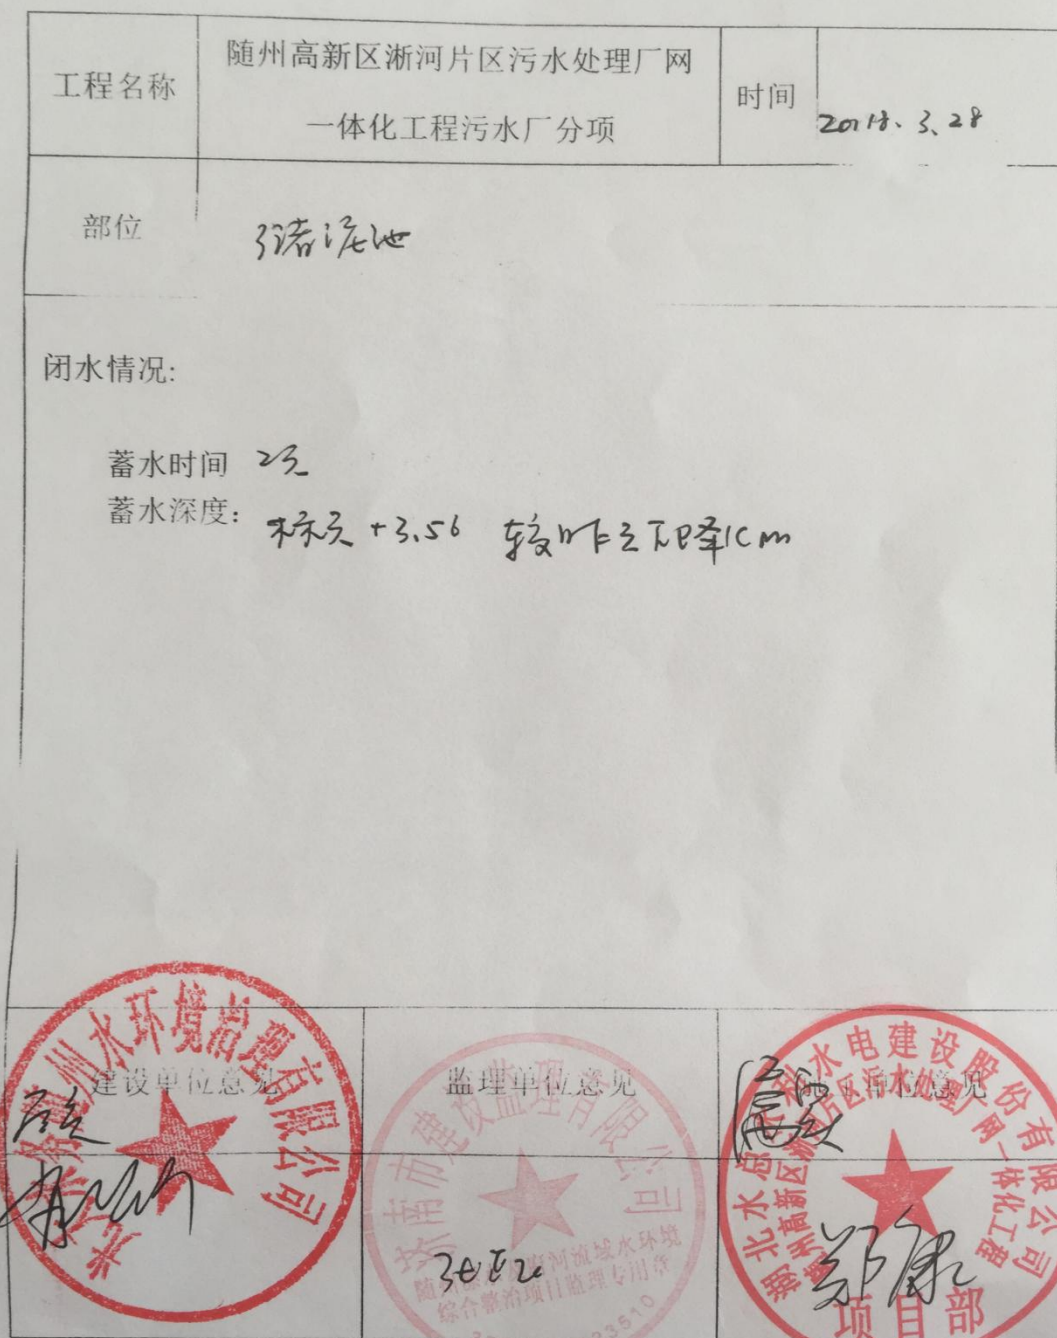 工程名称
随州高新区淅河片区污水处理厂网
一体化工程污水厂分项
时间
2018.3.28
部位
储泥池
闭水情况:
蓄水时间 2天
蓄水深度: 标高 +3.56 较昨天下降1cm
建设单位意见
监理单位意见
施工单位意见
州水环境治理有限公司
市建设监理有限公司
河流域水环境
综合整治项目监理专用章
湖北水总水利水电建设股份有限公司
随州高新区淅河片区污水处理厂网一体化工程
项目部
郑康